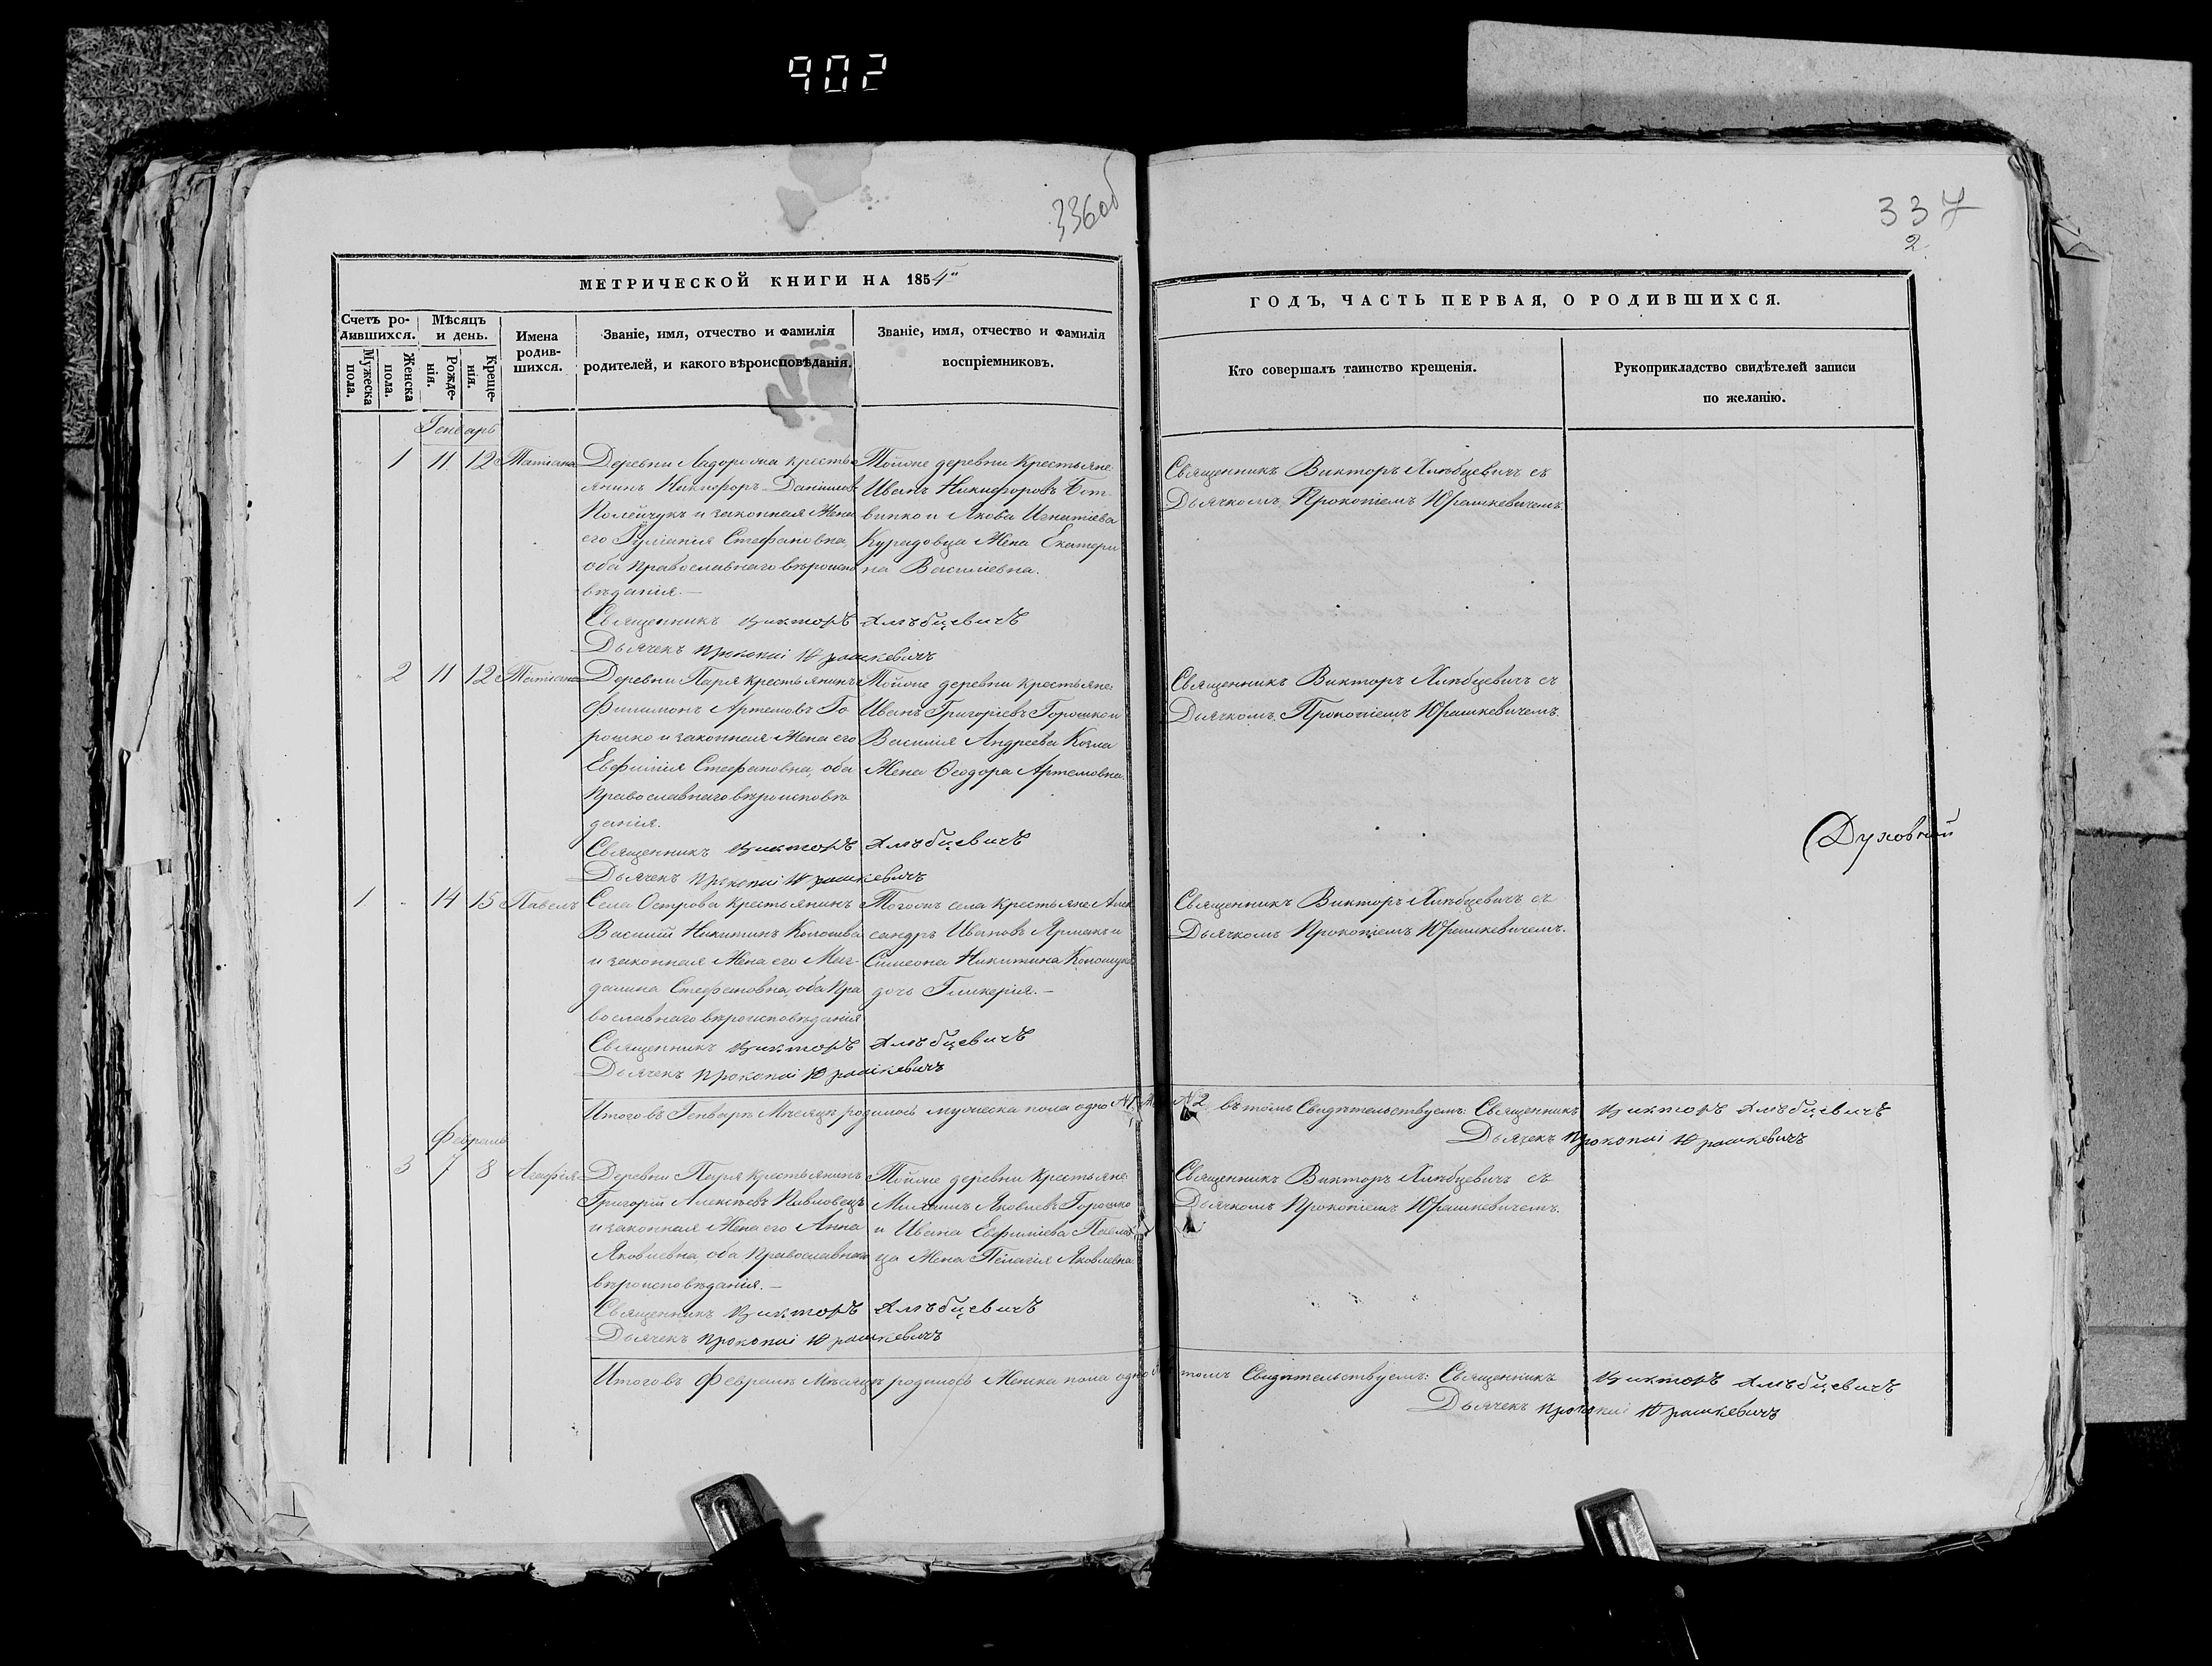 902
336об
337
2
МЕТРИЧЕСКОЙ КНИГИ НА 1854й
Счетъ ро-
дившихся.
Мужеска
пола.
Женска
пола.
Мѣсяцъ
и день.
Рожде-
нія.
Креще-
нія.
Имена
родив-
шихся.
Званіе, имя, отчество и фамилія
родителей, и какого вѣроисповѣданія.
Званіе, имя, отчество и фамилія
воспріемниковъ.
Генварь
1 11 12 Татіана
Деревни крестья
янинъ Никифоръ Даніиловъ
Полейчукъ и законная Жена
его Іуліанія Стефановна,
оба Православнаго вѣроиспо
вѣданія.—
Тойже деревни Крестьяне
Иванъ Никифоровъ Бот-
винко и Якова Игнатіева
Курадовца Жена Екатери
на Василіевна.
Священникъ Викторъ Хлѣбцевичъ
Дьячекъ Прокопій Юрашкевичъ
2 11 12 Татіана
Деревни Паря крестьянинъ
Филимонъ Артемовъ Го
рошко и законная Жена его
Евфимія Стефановна, оба
Православнаго вѣроисповѣ
данія.
Тойже деревни крестьяне
Иванъ Григоріевъ Горошко и
Василія Андреева Козла
Жена Ѳеодора Артемовна.
Священникъ Викторъ Хлѣбцевичъ
Дьячекъ Прокопій Юрашкевичъ
1 - 14 15 Павелъ
Села Острова крестьянинъ
Василій Никитинъ
и законная Жена его Маг-
далина Стефановна, оба Пра
вославнаго вѣроисповѣданія
Тогожъ села Крестьяне Алек
сандръ Ивановъ Ярмакъ и
Симеона Никитина
дочь Гликерія.—
Священникъ Викторъ Хлѣбцевичъ
Дьячекъ Прокопій Юрашкевичъ
Итого въ Генварѣ Мѣсяцѣ родилось мужеска пола одно №1.
Февраль
3 7 8 Агафія
Деревни Паря крестьянинъ
Григорій Алексѣевъ Павловецъ
и законная Жена его Анна
Яковлевна, оба Православнаго
вѣроисповѣданія.—
Тойже деревни Крестьяне
Михаилъ Яковлевъ Горошко
и Ивана Евфиміева Павлов
ца Жена Пелагія Яковлевна.
Священникъ Викторъ Хлѣбцевичъ
Дьячекъ Прокопій Юрашкевичъ
Итого въ Февралѣ Мѣсяцѣ родилось Женска пола одно
ГОДЪ, ЧАСТЬ ПЕРВАЯ, О РОДИВШИХСЯ.
Кто совершалъ таинство крещенія.
Рукоприкладство свидѣтелей записи
по желанію.
Священникъ Викторъ Хлѣбцевичъ съ
Дьячкомъ Прокопіемъ Юрашкевичемъ.
Священникъ Викторъ Хлѣбцевичъ съ
Дьячкомъ Прокопіемъ Юрашкевичемъ.
Духовной
Священникъ Викторъ Хлѣбцевичъ съ
Дьячкомъ Прокопіемъ Юрашкевичемъ.
№2, въ томъ Свидѣтельствуемъ: Священникъ Викторъ Хлѣбцевичъ
Дьячекъ Прокопій Юрашкевичъ
Священникъ Викторъ Хлѣбцевичъ съ
Дьячкомъ Прокопіемъ Юрашкевичемъ.
томъ Свидѣтельствуемъ: Священникъ Викторъ Хлѣбцевичъ
Дьячекъ Прокопій Юрашкевичъ